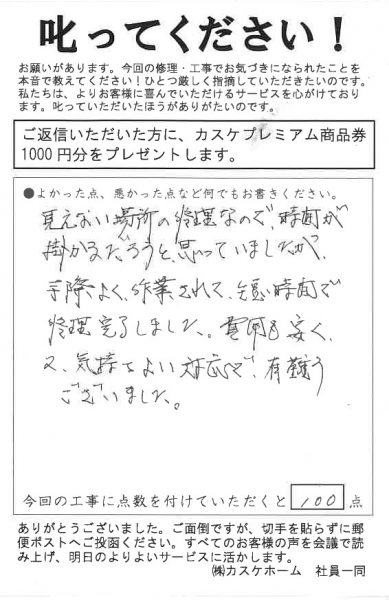 叱ってください！
お願いがあります。今回の修理・工事でお気づきになられたことを
本音で教えてください！ひとつ厳しく指摘していただきたいのです。
私たちは、よりお客様に喜んでいただけるサービスを心がけており
ます。叱っていただいたほうがありがたいのです。
ご返信いただいた方に、カスケプレミアム商品券
1000円分をプレゼントします。
●よかった点、悪かった点など何でもお書きください。
見えない場所の修理なので、時間が
掛かるだろうと思っていましたが、
手際よく、作業されて、短い時間で
修理完了しました。費用も安く、
又、気持ちよい対応で、有難う
ございました。
今回の工事に点数を付けていただくと 100 点
ありがとうございました。ご面倒ですが、切手を貼らずに郵
便ポストへご投函ください。すべてのお客様の声を会議で読
み上げ、明日のよりよいサービスに活かします。
㈱カスケホーム 社員一同